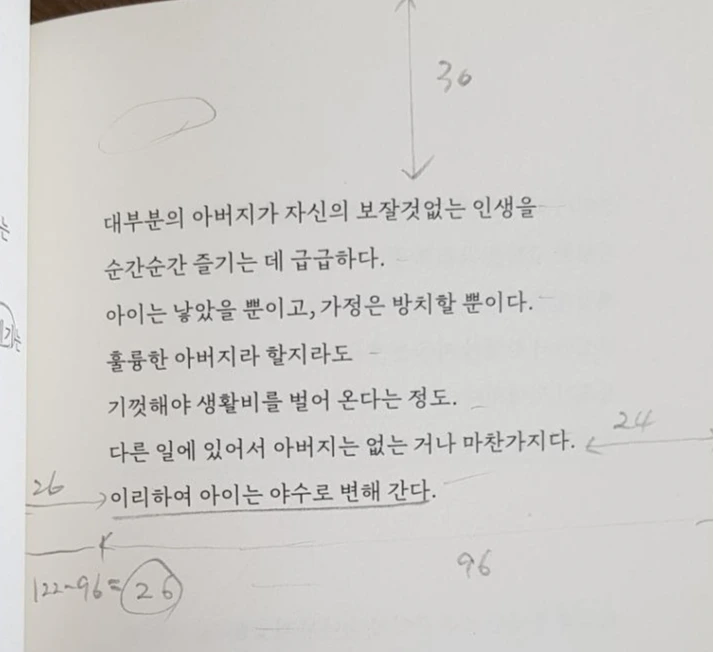 30
대부분의 아버지가 자신의 보잘것없는 인생을
순간순간 즐기는 데 급급하다.
아이는 낳았을 뿐이고, 가정은 방치할 뿐이다.
훌륭한 아버지라 할지라도
기껏해야 생활비를 벌어 온다는 정도.
다른 일에 있어서 아버지는 없는 거나 마찬가지다.
24
26
이리하여 아이는 야수로 변해 간다.
96
122-96=26